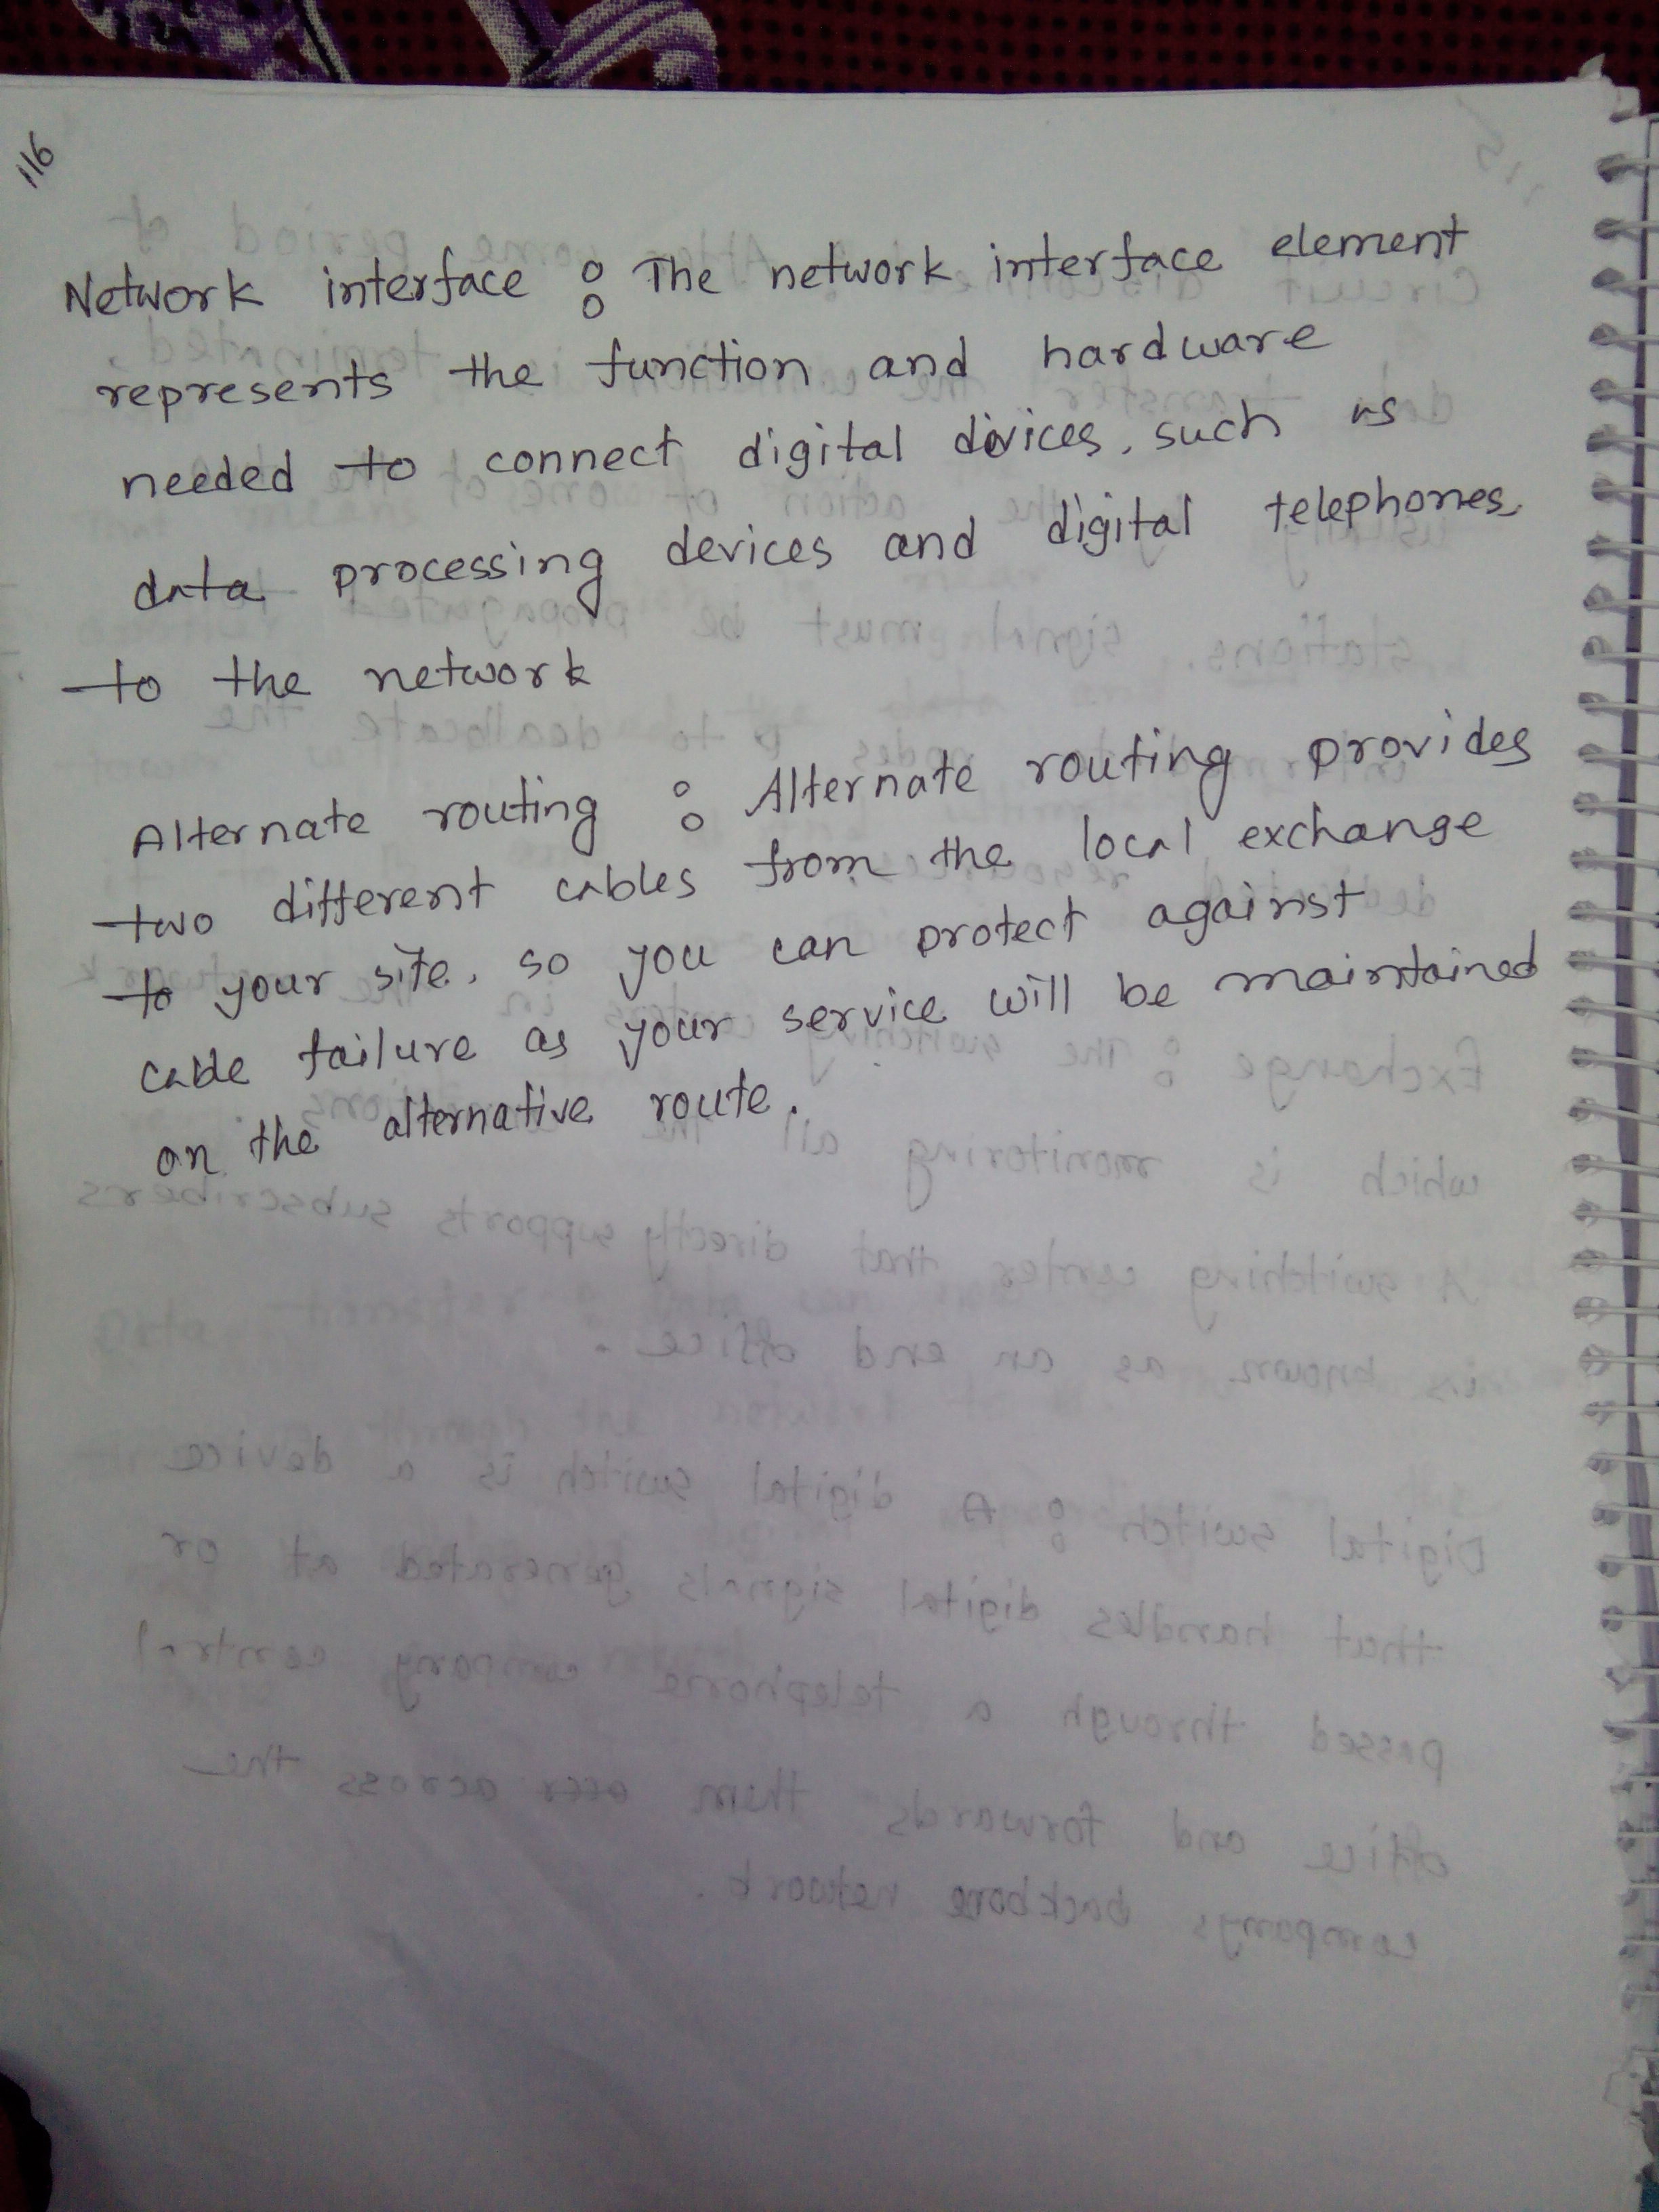 116
Network interface : The network interface element
represents the function and hardware
needed to connect digital divices, such as
data processing devices and digital telephones,
to the network
Alternate routing : Alternate routing provides
two different cables from the local exchange
to your site, so you can protect against
cable failure as your service will be maintained
on the alternative route.